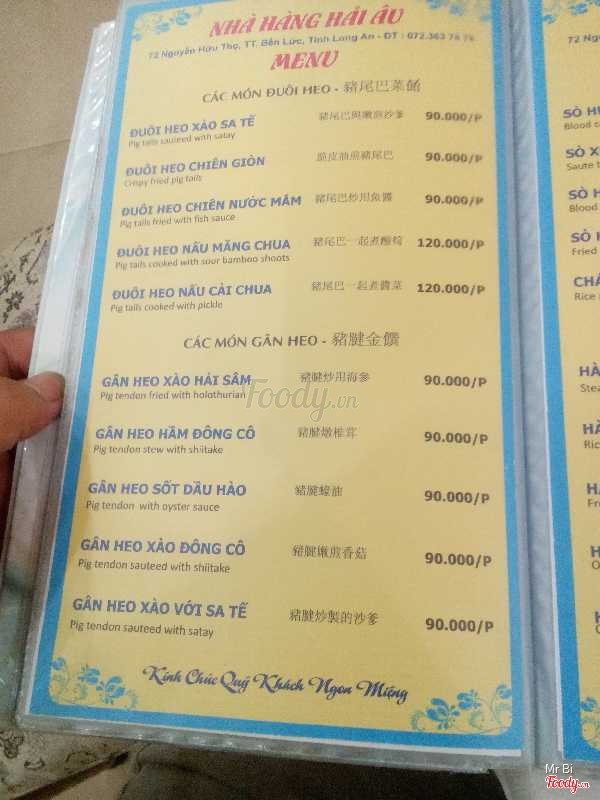 NHÀ HÀNG HẢI ÂU
72 Nguyễn Hữu Thọ, TT. Bến Lức, Tỉnh Long An - ĐT : 072.363 76 76
MENU
CÁC MÓN ĐUÔI HEO - 豬尾巴菜餚
ĐUÔI HEO XÀO SA TẾ 豬尾巴與嫩煎沙爹 90.000/P
Pig tails sauteed with satay
ĐUÔI HEO CHIÊN GIÒN 脆皮油煎豬尾巴 90.000/P
Crispy fried pig tails
ĐUÔI HEO CHIÊN NƯỚC MẮM 豬尾巴炒用魚醬 90.000/P
Pig tails fried with fish sauce
ĐUÔI HEO NẤU MĂNG CHUA 豬尾巴一起煮酸筍 120.000/P
Pig tails cooked with sour bamboo shoots
ĐUÔI HEO NẤU CẢI CHUA 豬尾巴一起煮醬菜 120.000/P
Pig tails cooked with pickle
CÁC MÓN GÂN HEO - 豬腱金饌
GÂN HEO XÀO HẢI SÂM 豬腱炒用海參 90.000/P
Pig tendon fried with holothurian
GÂN HEO HẦM ĐÔNG CÔ 豬腱燉椎茸 90.000/P
Pig tendon stew with shiitake
GÂN HEO SỐT DẦU HÀO 豬腱蠔油 90.000/P
Pig tendon with oyster sauce
GÂN HEO XÀO ĐÔNG CÔ 豬腱嫩煎香菇 90.000/P
Pig tendon sauteed with shiitake
GÂN HEO XÀO VỚI SA TẾ 豬腱炒製的沙爹 90.000/P
Pig tendon sauteed with satay
Kính Chúc Quý Khách Ngon Miệng
72 Nguyễn
SÒ HU
Blood c
SÒ X
Saute t
SÒ H
Blood
SÒ H
Fried
CHÁ
Rice
HÀ
Stea
HÀ
Rice
Foody.vn
Mr Bi
Foody.vn